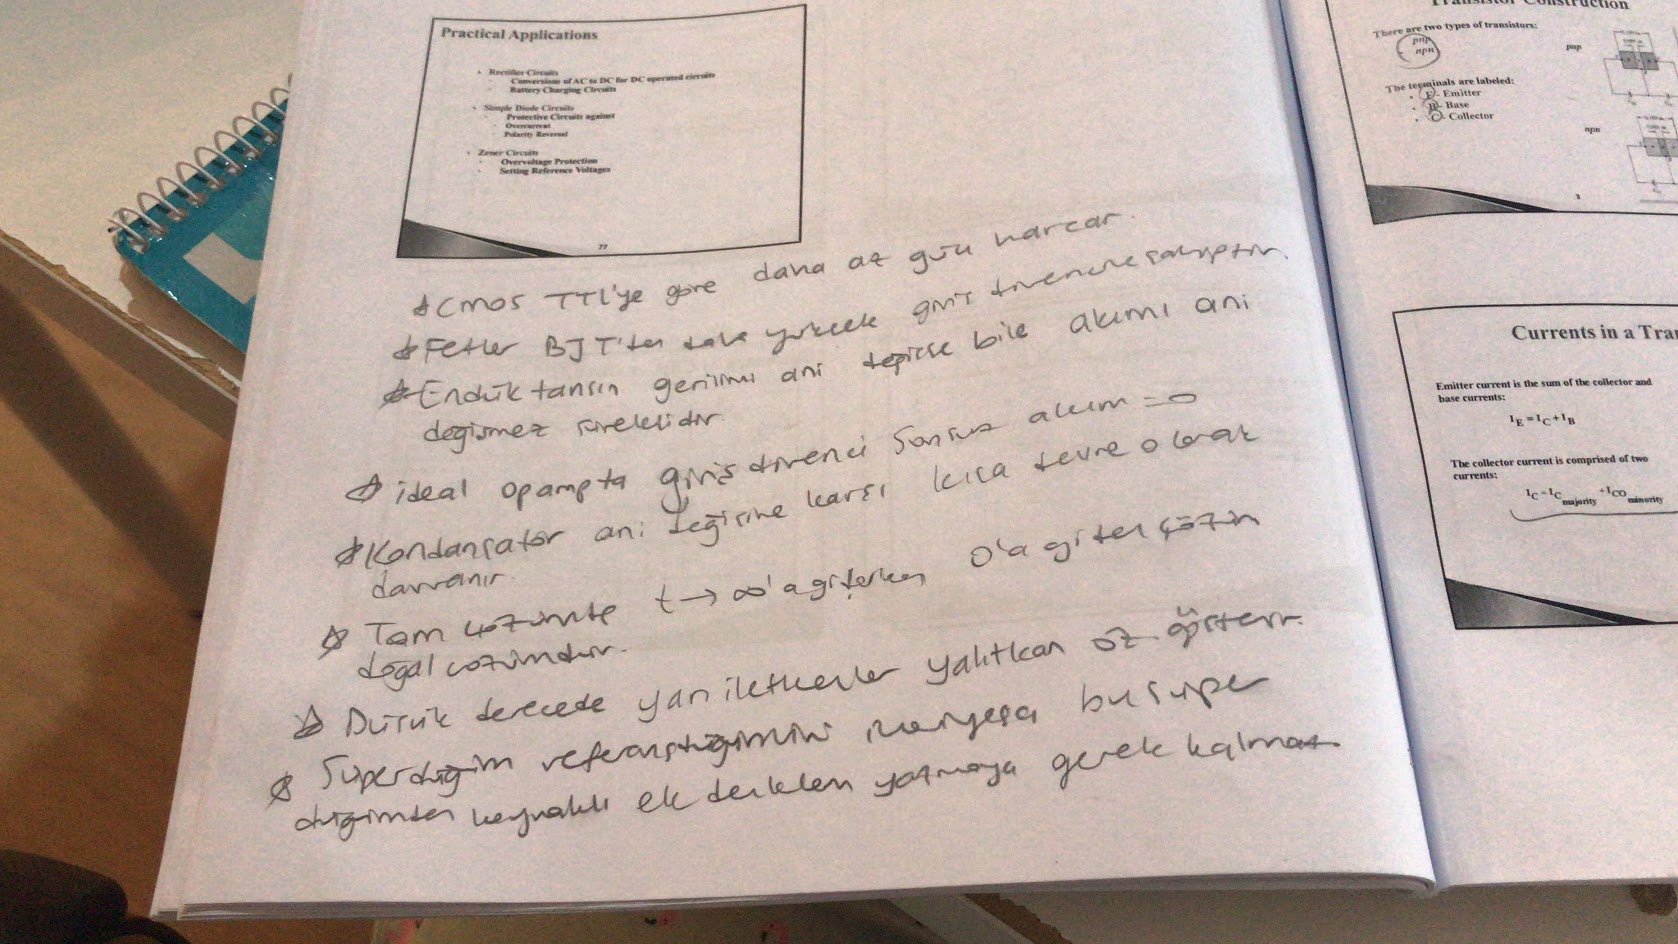 Practical Applications
Rectifier Circuits
Conversions of AC to DC for DC operated circuits
Battery Charging Circuits
Simple Diode Circuits
Protective Circuits against
Overcurrent
Polarity Reversal
Zener Circuits
Overvoltage Protection
Setting Reference Voltages
77
CMOS TTL'ye göre daha az güç harcar.
Fetler BJT'den daha yüksek giriş direncine sahiptir.
Endüktansın gerilimi ani değişse bile akımı ani
değişmez süreklidir.
ideal opampta giriş direnci sonsuz akım = 0
Kondansatör ani değişime karşı kısa devre olarak
davranır.
Tam çözümde t → ∞'a giderken 0'a giden çözüm
doğal çözümdür.
Düşük derecede yarı iletkenler yalıtkan öz. gösterir.
Süperdüğüm referans düğümünü içeriyorsa bu süper
düğümden kaynaklı ek denklem yazmaya gerek kalmaz.
Transistor Construction
There are two types of transistors:
pnp
npn
pnp
The terminals are labeled:
E - Emitter
B - Base
C - Collector
npn
3
Currents in a Tra
Emitter current is the sum of the collector and
base currents:
I E = I C + I B
The collector current is comprised of two
currents:
I C = I C majority + I CO minority